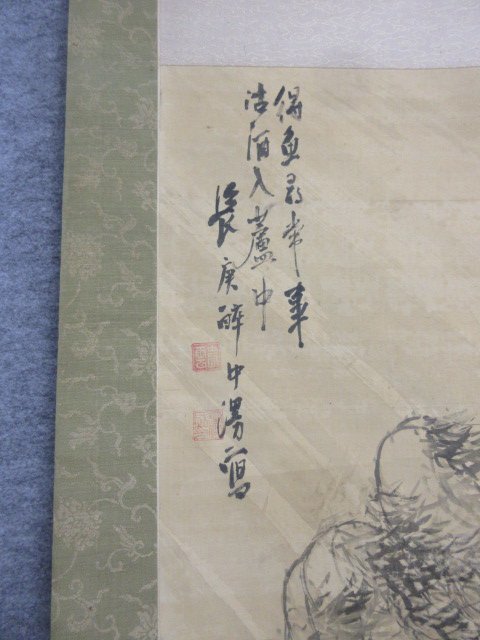 得魚尋常事
沽酒入蘆中
長庚醉中漫寫